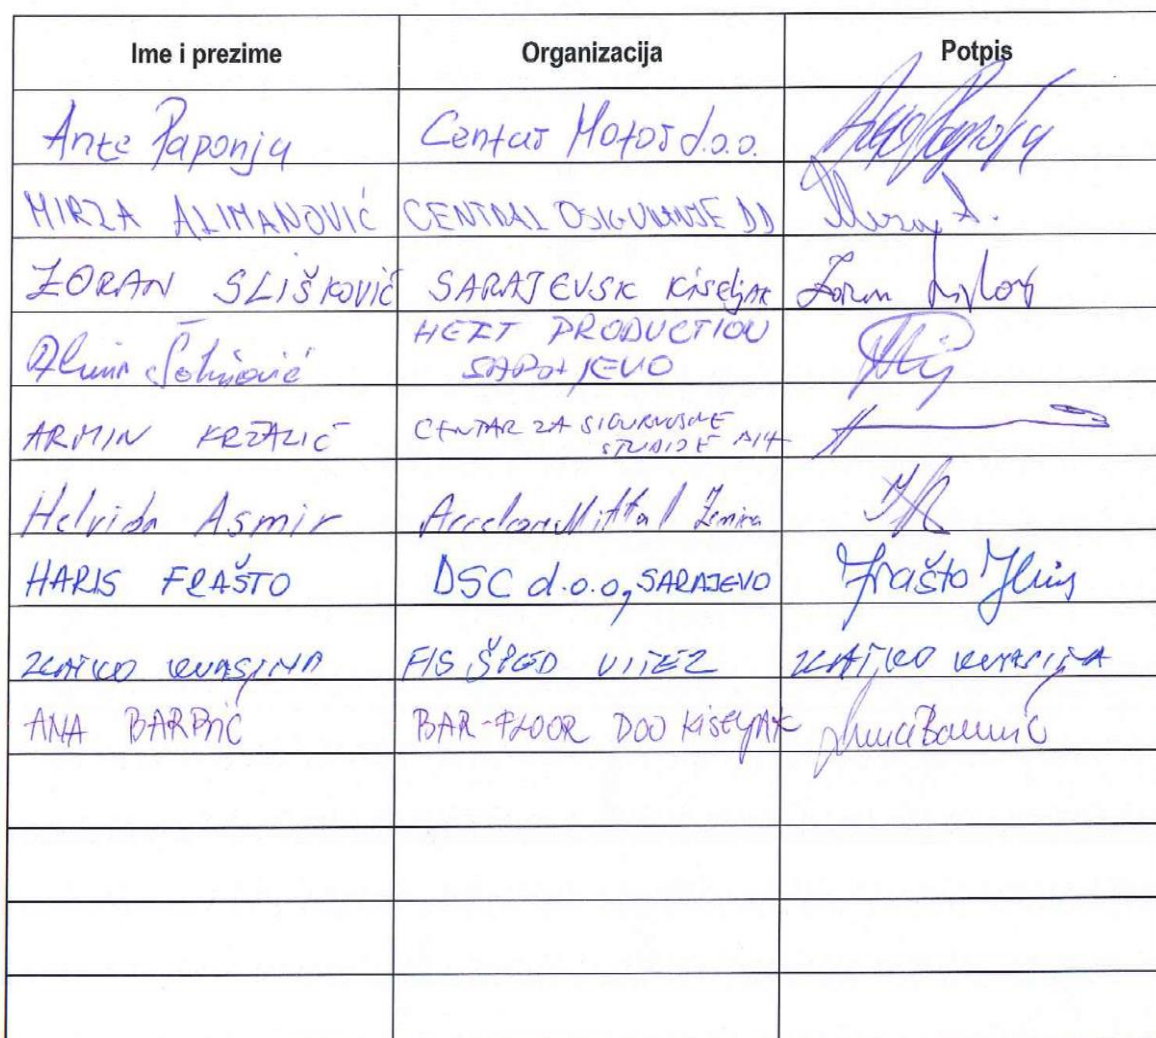 Ime i prezime Organizacija Potpis
Ante Paponja Centar Motor d.o.o.
MIRZA ALIMANOVIĆ CENTRAL OSIGURANJE DD
ZORAN SLIŠKOVIĆ SARAJEVSK KISELJAK Zoran
HEFT PRODUCTION
SARAJEVO
ARMIN KRŽALIĆ CENTAR ZA SIGURNOSNE
STUDIJE BIH
Helvida Asmir ArcelorMittal Zenica
HARIS FRAŠTO DSC d.o.o, SARAJEVO Frašto Haris
ZLATKO KVASINA FIS ŠPED VITEZ ZLATKO KVASINA
ANA BARBIĆ BAR-FLOOR DOO KISELJAK